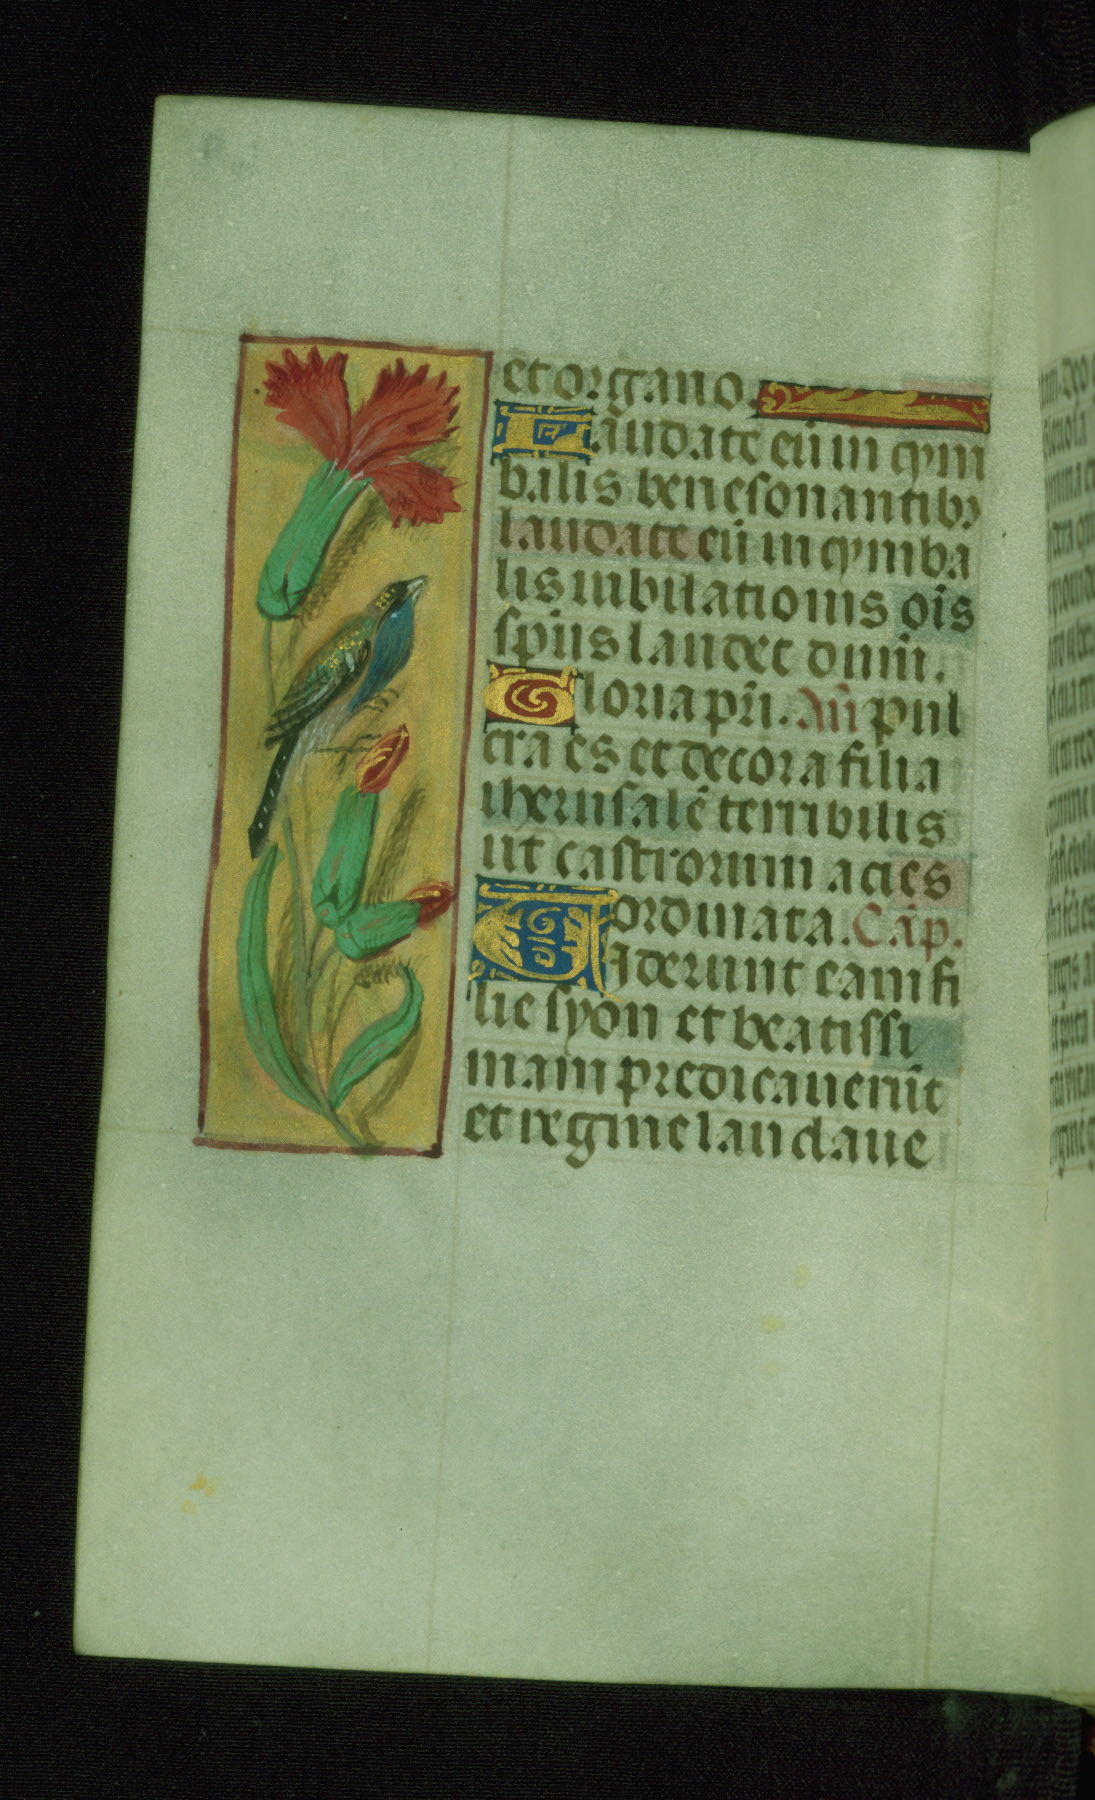 et organo.
Laudate eū in cym
balis benesonantibꝫ
laudate eū in cymba
lis iubilationis oīs
spūs laudet dn̄m.
Gloria pr̄i. Añ pul
cra es et decora filia
iherusalē terribilis
ut castrorum acies
ordinata. Cāp.
Viderunt eam fi
lie syon et beatissi
mam predicauerūt
et regine laudaue